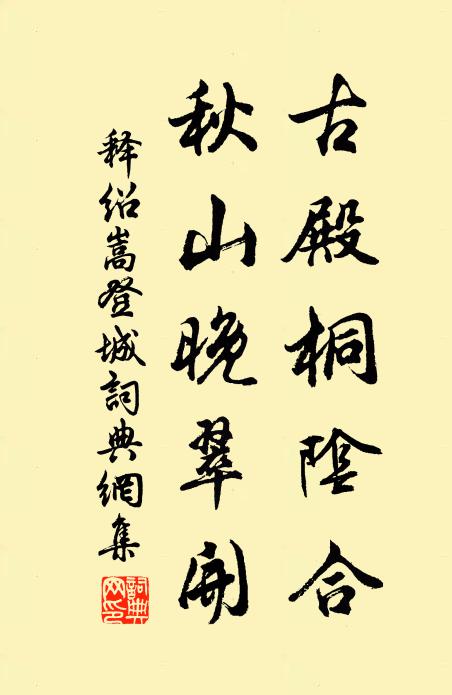 古殿桐陰合
秋山晚翠開
释紹嵩登城詞典網集
詞典網印